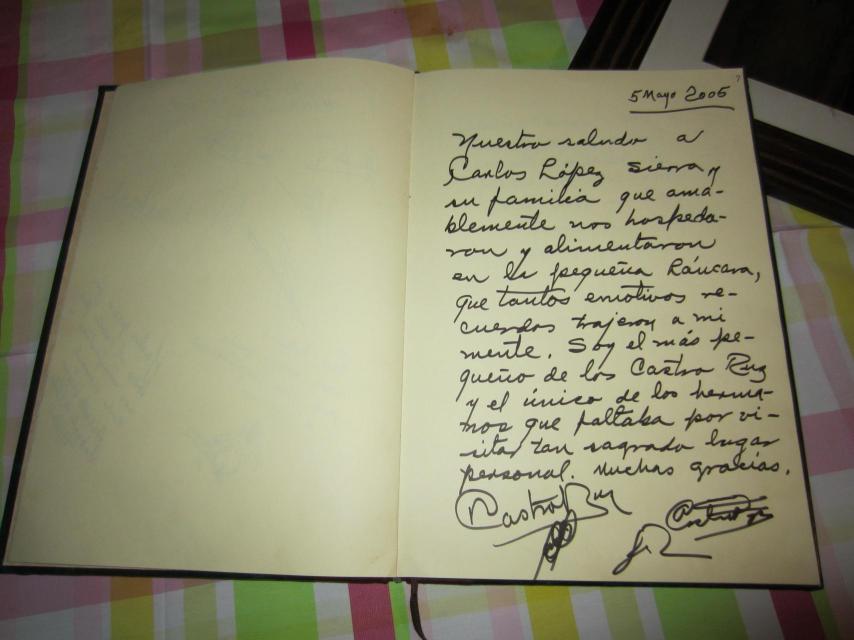 5 Mayo 2005
Nuestro saludo a
Carlos López Sierra y
su familia que ama-
blemente nos hospeda-
ron y alimentaron
en la pequeña Láncara,
que tantos emotivos re-
cuerdos trajeron a mi
mente. Soy el más pe-
queño de los Castro Ruz
y el único de los herma-
nos que faltaba por vi-
sitar tan sagrado lugar
personal. Muchas gracias.
Castro Ruz